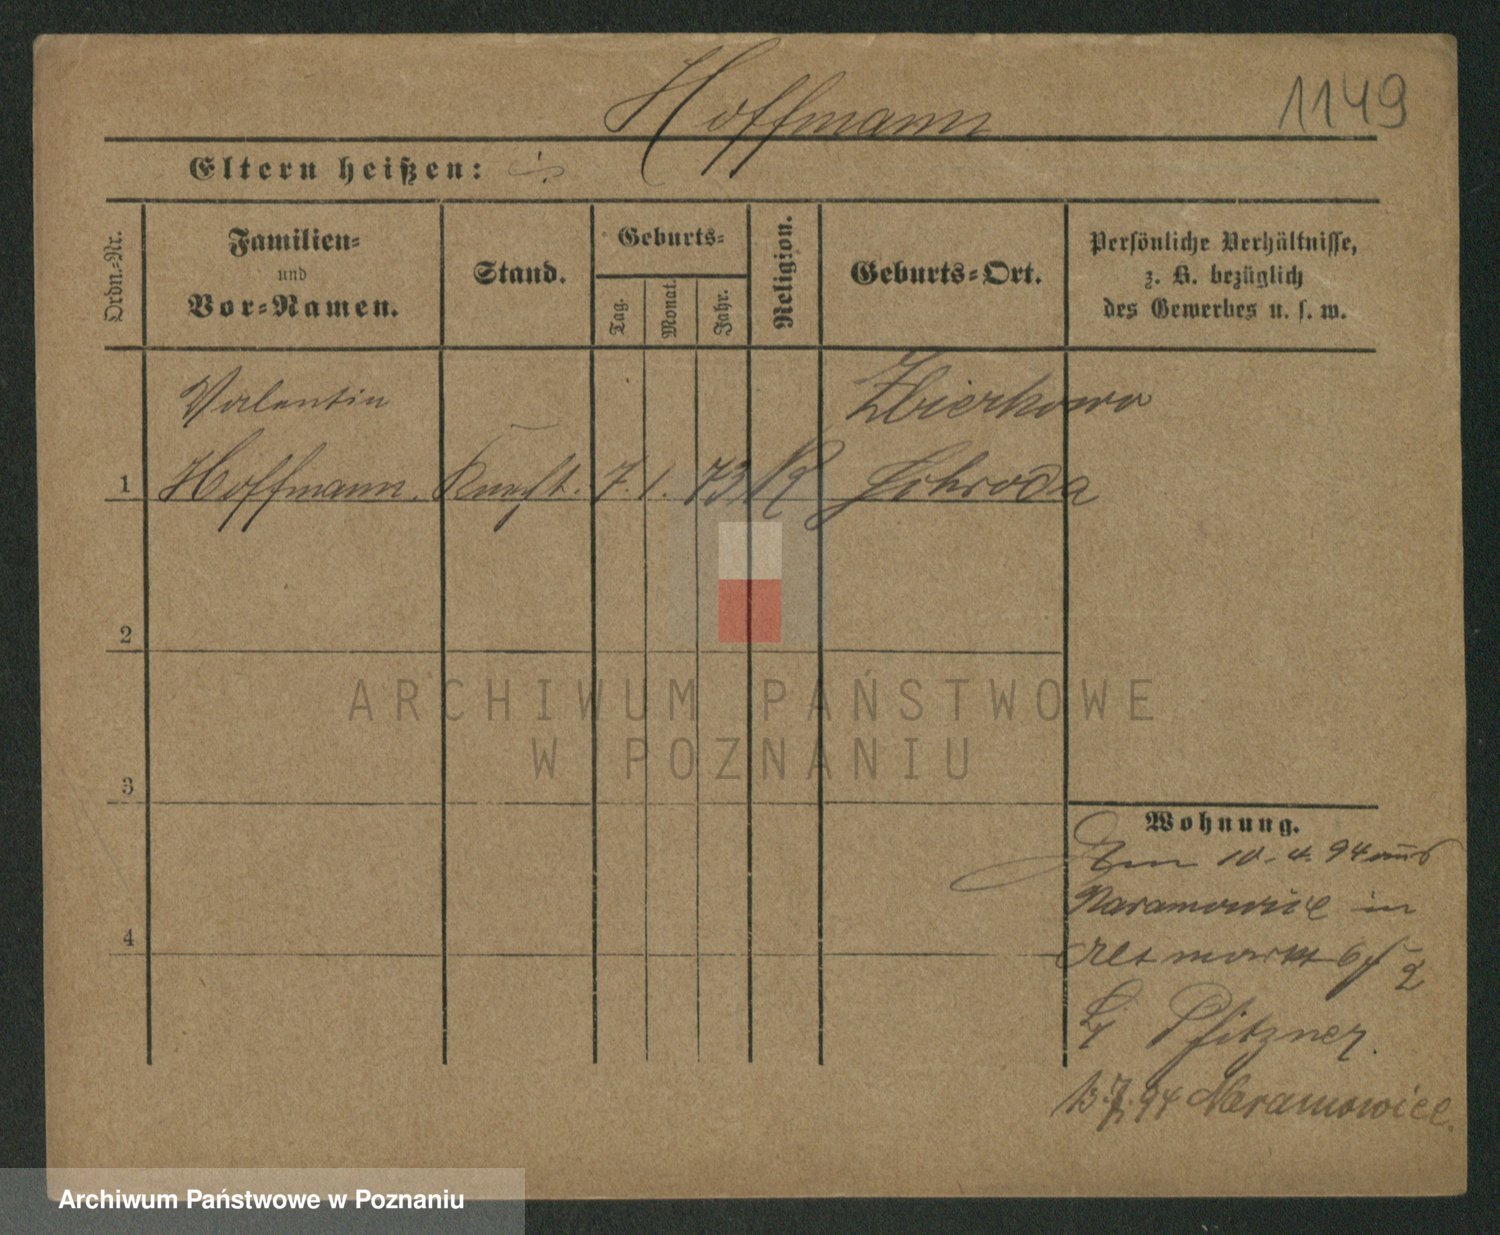 Hoffmann
1149
Eltern heißen:
Ordn.-Nr.
Familien-
und
Vor-Namen.
Stand.
Geburts-
Tag.
Monat.
Jahr.
Religion.
Geburts-Ort.
Persönliche Verhältnisse,
z. B. bezüglich
des Gewerbes u. s. w.
Valentin
Zbierkowo
1 Hoffmann. 7. 1. 73 K Schroda
2
ARCHIWUM PAŃSTWOWE
W POZNANIU
3
Wohnung.
10. 4. 94 aus
Naramowice in
Altmarkt 2
Pfitzner.
13.7.94 Naramowice.
4
Archiwum Państwowe w Poznaniu